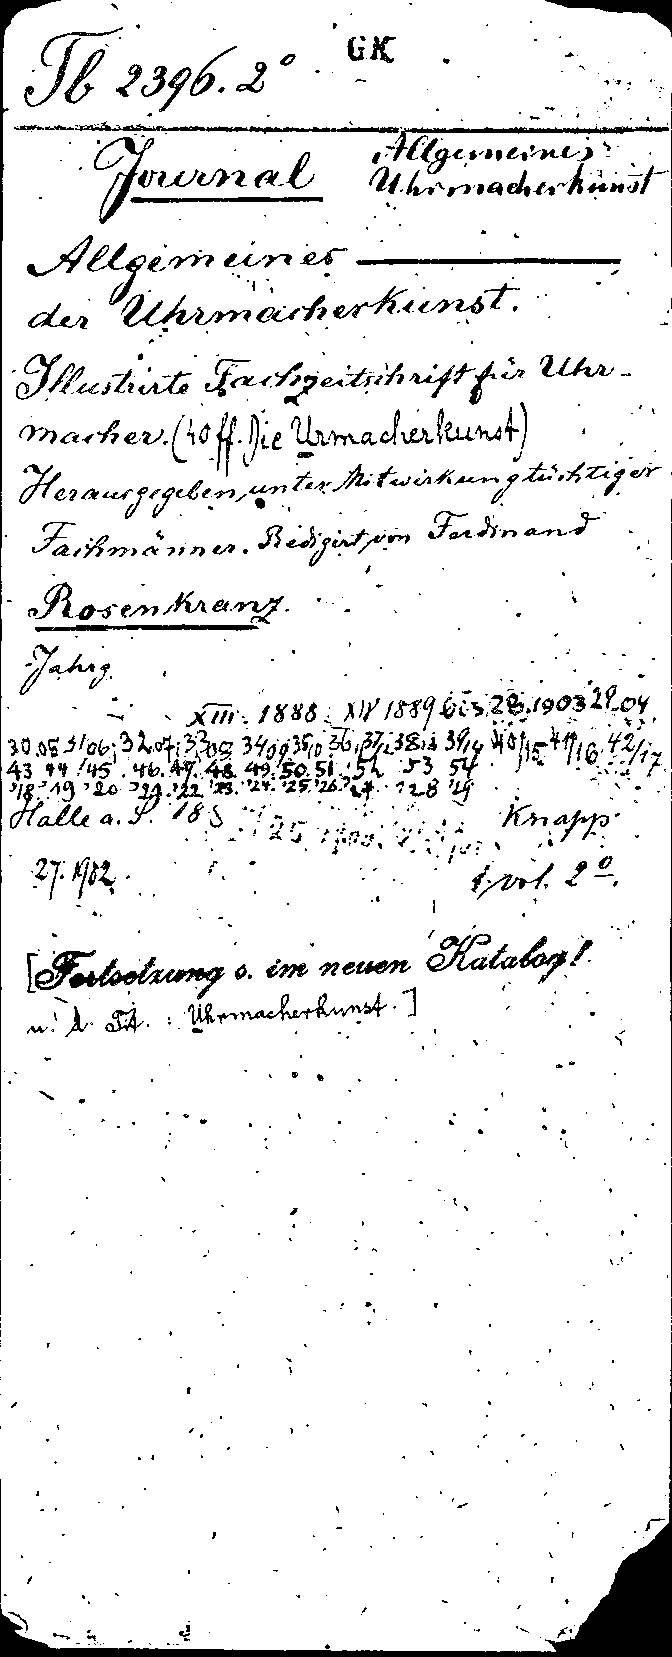 GK
Tb 2396. 2°
Journal Allgemeines
Uhrmacherkunst
Allgemeines ———
der Uhrmacherkunst.
Illustrirte Fachzeitschrift für Uhr-
macher. (40 ff. Die Urmacherkunst)
Herausgegeben unter Mitwirkung tüchtiger
Fachmänner. Redigirt von Ferdinand
Rosenkranz.
Jahrg
XIII. 1888. XIV 1889 bis 28. 1903 29. 04.
30.05 31/06; 32.07; 33/08 34/09 35/10 36/11 37/12 38/13 39/14 40/15 41/16 42/17
43 44 45 46 47 48 49 50 51 52 53 54
'18 '19 '20 '21 '22 '23 '24 '25 '26 '27 '28 '29
Halle a. S. 188 Knapp
27. 1902. 1 vol. 2°.
[Fortsetzung s. im neuen Katalog!
u. d. Tit. : Uhrmacherkunst.]